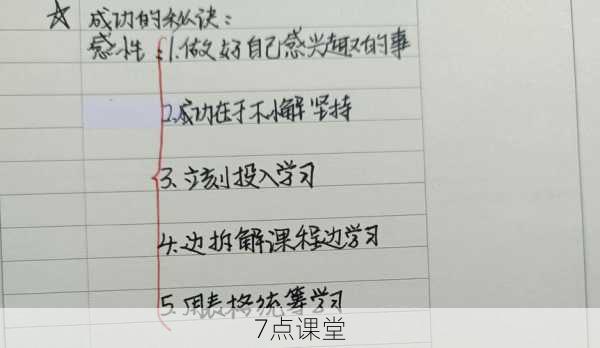 ☆ 成功的秘诀：
感性：1.做好自己感兴趣的事
2.成功在于不懈坚持
3.立刻投入学习
4.边拆解课程边学习
5.用表格统筹学习
7点课堂